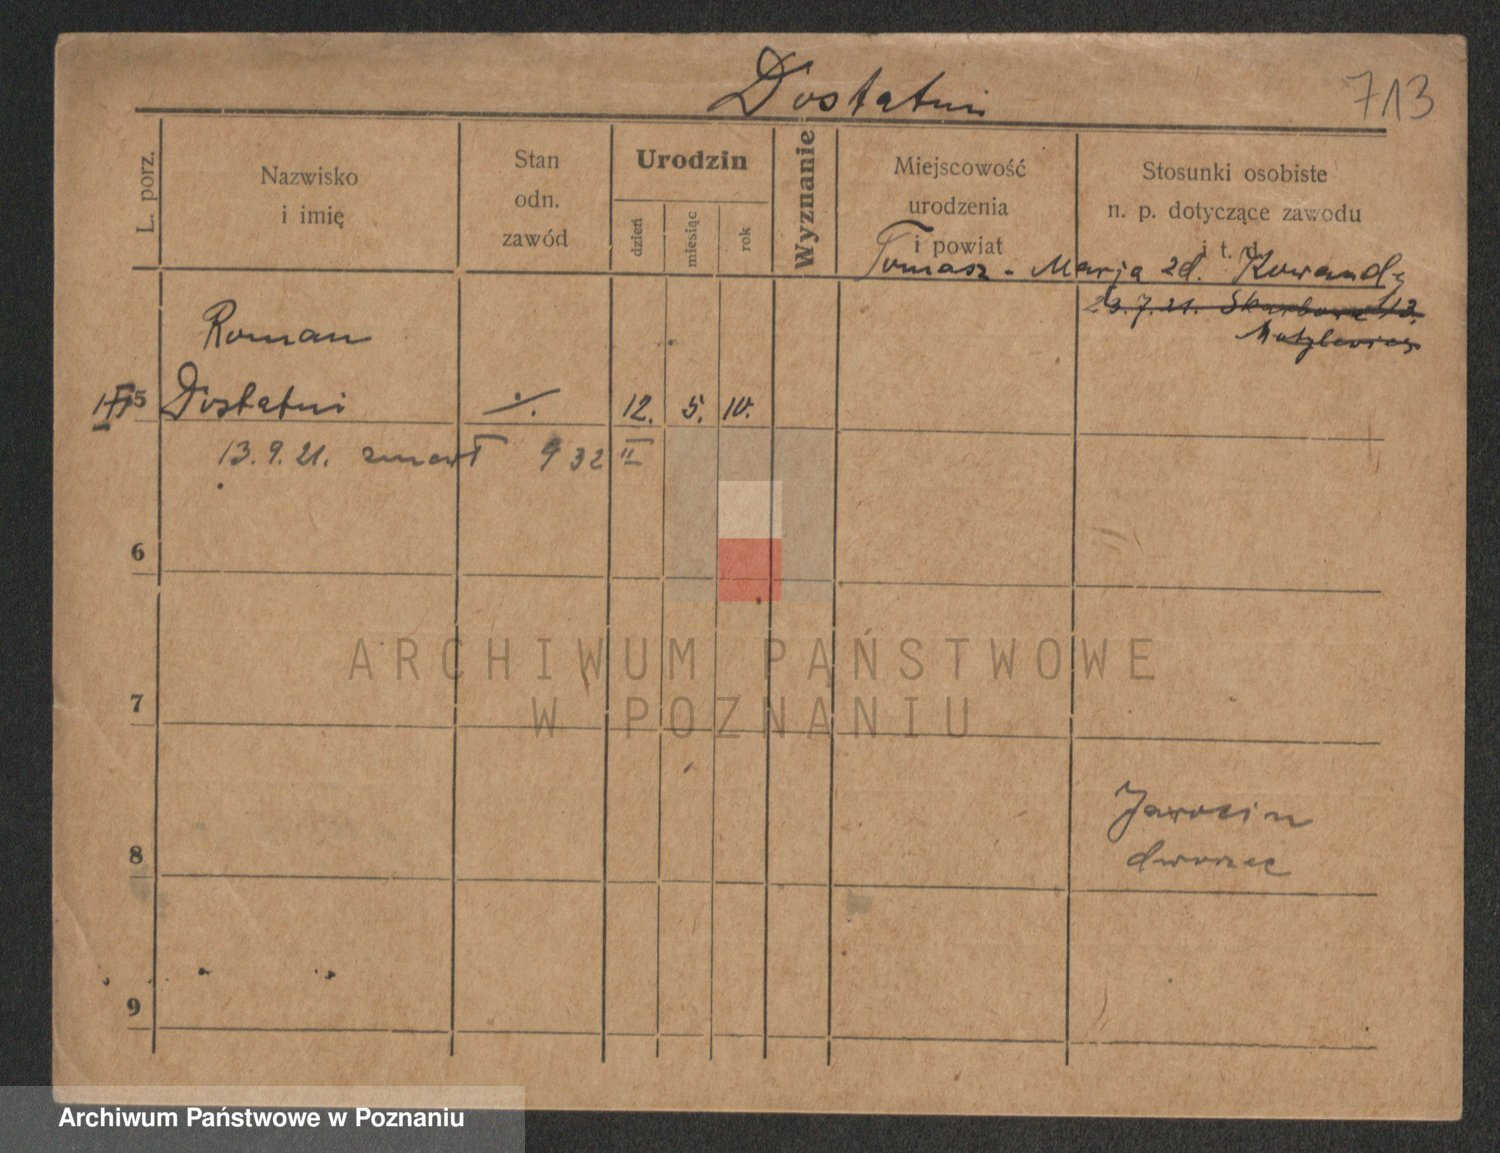 Dostatni
713
L. porz.
Nazwisko
i imię
Stan
odn.
zawód
Urodzin
dzień
miesiąc
rok
Wyznanie
Miejscowość
urodzenia
i powiat
Stosunki osobiste
n. p. dotyczące zawodu
i t. d.
Tomasz - Marja zd. Kowandy
23.7.21. Skarbowa 13.
Roman
5 Dostatni ./. 12. 5. 10.
13.9.21. zmarł 932 II
6
ARCHIWUM PAŃSTWOWE
W POZNANIU
7
Jarocin
dworzec
8
9
Archiwum Państwowe w Poznaniu